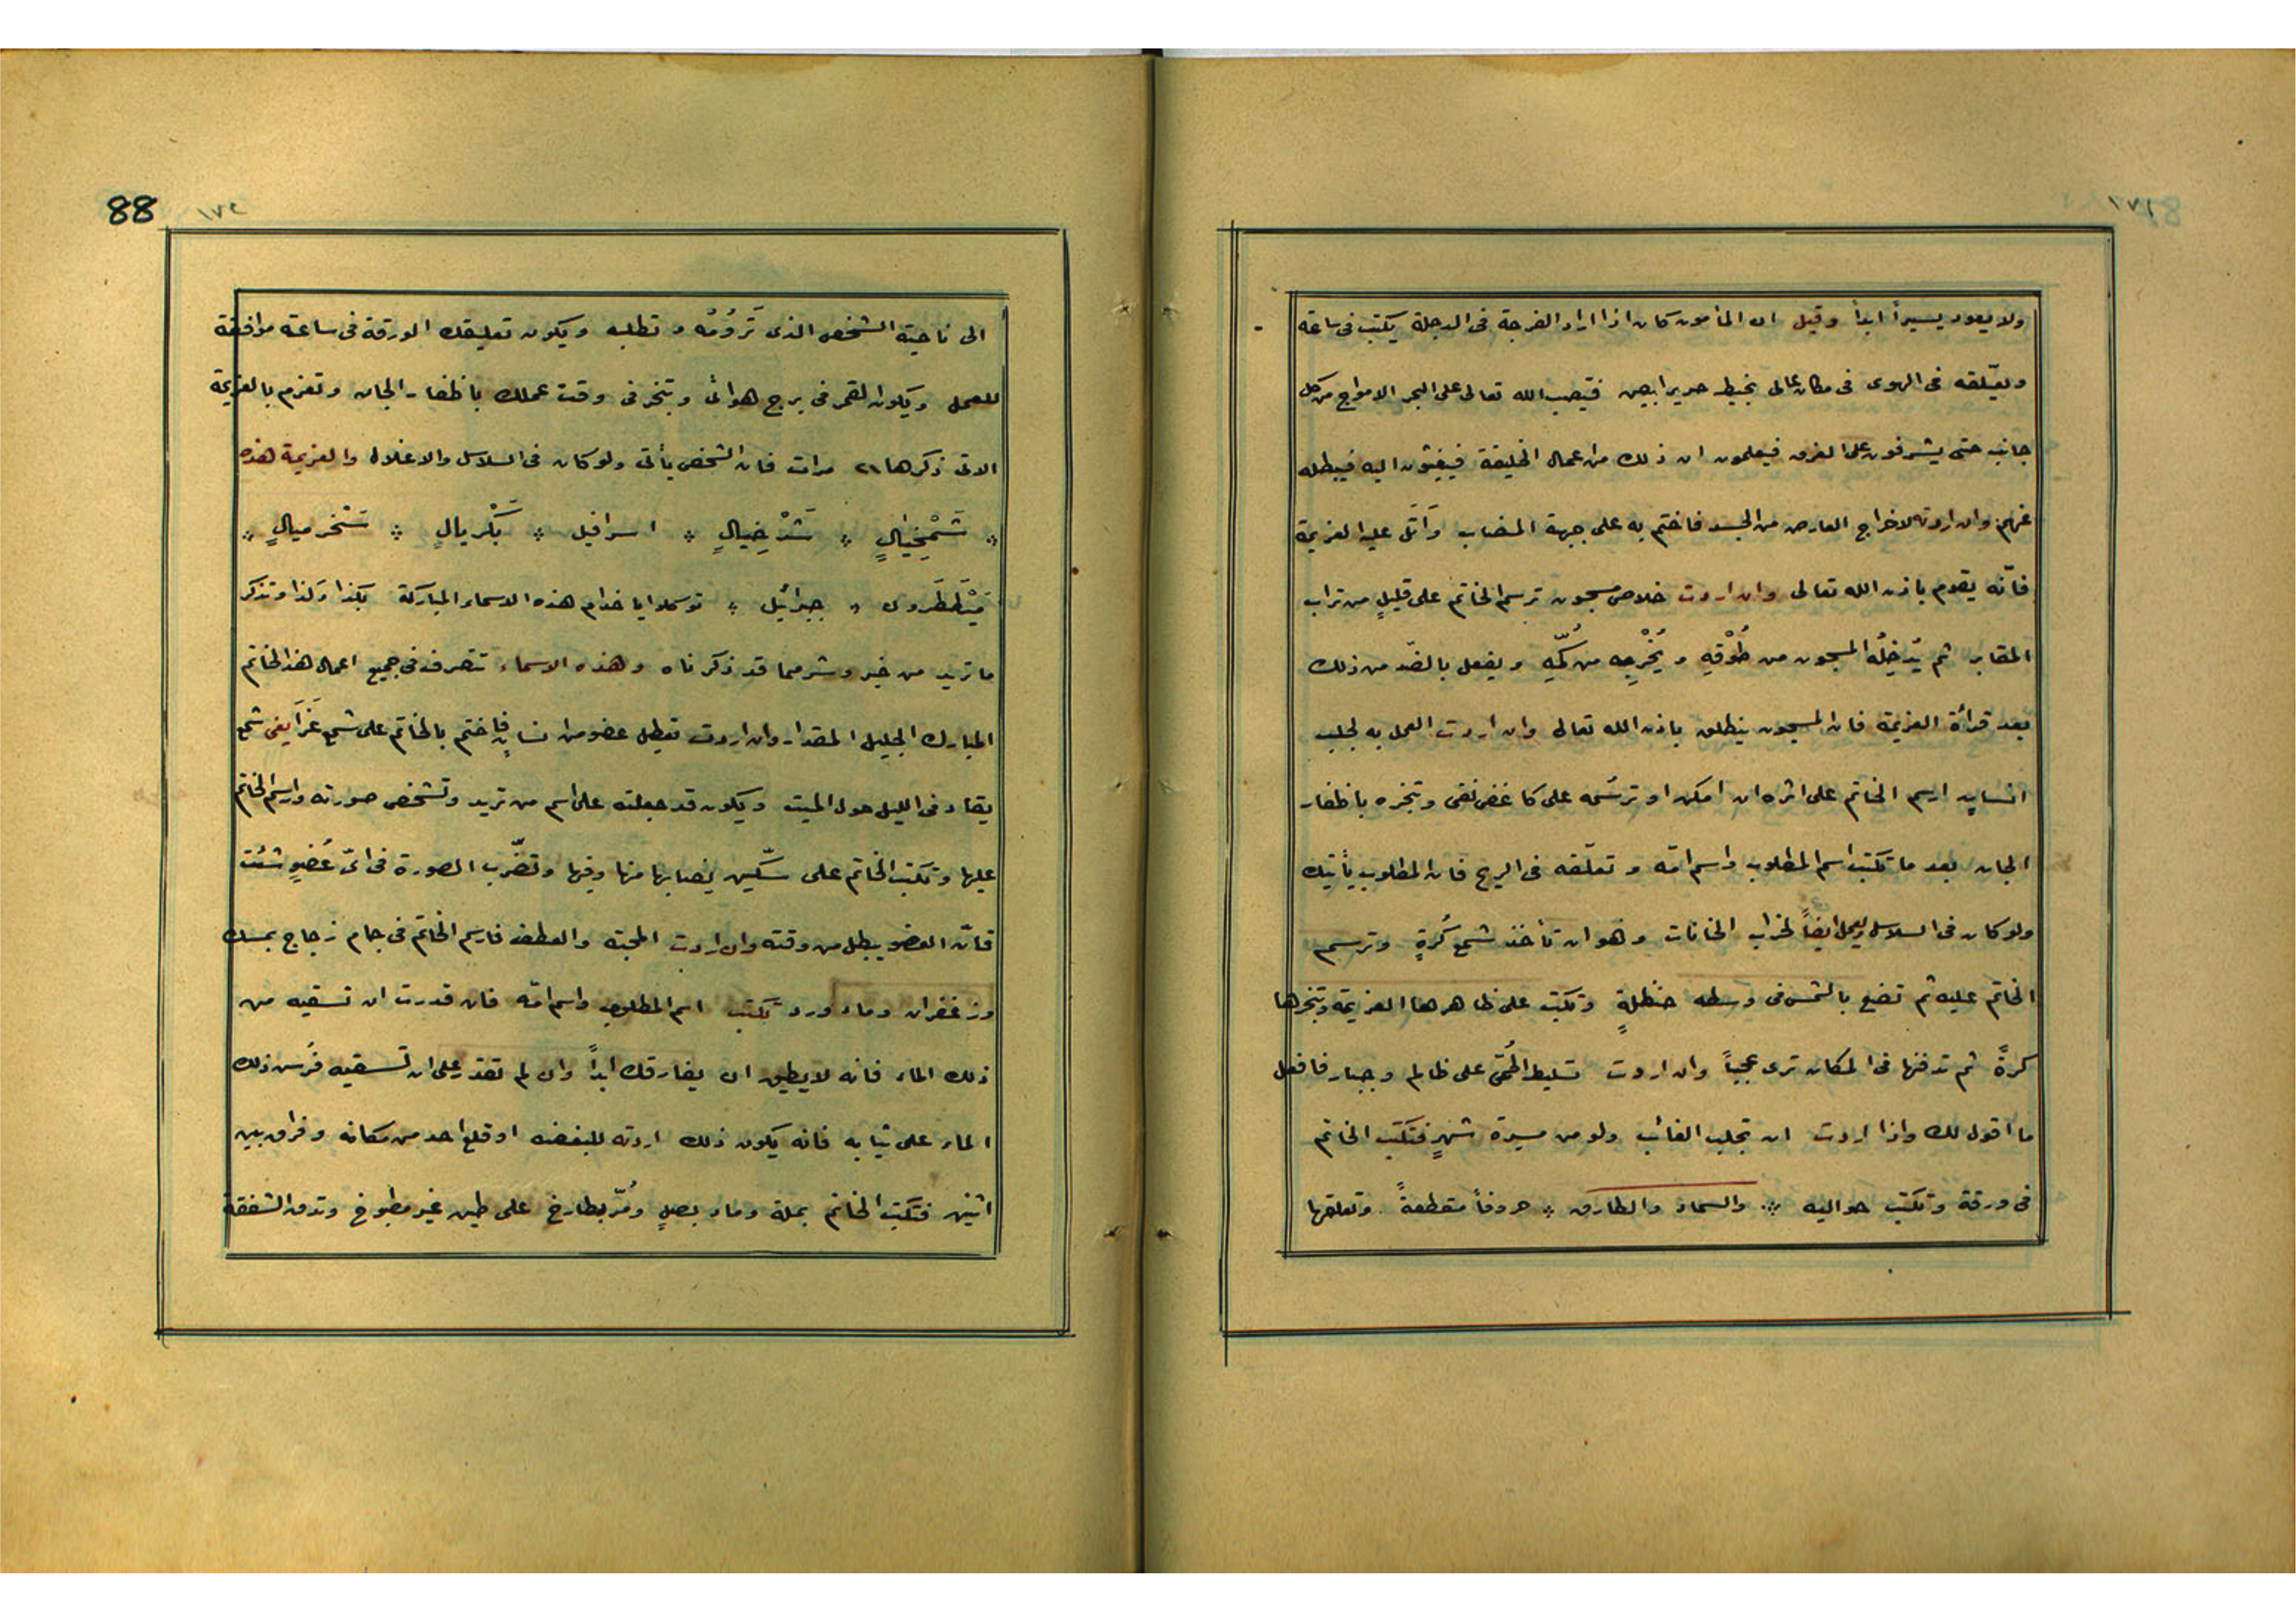 ولا يعود يسيراً ابداً وقيل ان المأمون كان اذا اراد الفرجة فى الدجلة يكتب فى ساعة
ويعلّقه فى الهوى فى مكان عالى بخيط حرير ابيض فيصب الله تعالى على البحر الامواج من كل
جانب حتى يشرفون على الغرق فيعلمون ان ذلك من اعمال الخليفة فيغيثون اليه فيبطله
عنهم وان اردته لاخراج العارض من الجسد فاختم به على جبهة المصاب وَاتل عليه العزيمة
فانّه يقوم باذن الله تعالى وان اردت خلاص مسجون ترسم الخاتم على قليلٍ من تراب
المقابر ثم يُدخِلُه المسجون من طُوْقِهِ ويُخْرِجِه من كُمِّهِ ويفعل بالضدّ من ذلك
بعد قرائة العزيمة فان المسجون ينطلق باذن الله تعالى وان اردت العمل به لجلب
انسانٍ ارسم الخاتم على اثره ان امكن او ترسُمه على كاغض نقى وتبخره باظفار
الجان بعد ما تكتب اسم المطلوب واسم امّه وتعلّقه فى الريح فان المطلوب يأتيك
ولو كان فى السلاسل ويعمل ايضاً لخراب الخانات وهو ان تأخذ شمع كُرةٍ وترسم
الخاتم عليه ثم تضع بالشمس فى وسطه حنظلةٍ وتكتب على ظاهرها العزيمة وتبخرها
كرةً ثم تدفنها فى المكان ترى عجيباً وان اردت تسليط الحُمّى على ظالم وجبار فافعل
ما اقول لك واذا اردت ان تجلب الغائب ولو من مسيرة شهرٍ فتكتب الخاتم
فى ورقة وتكتب حواليه ⁘ والسماء والطارق ⁘ حروفاً متقطعةً وتعلقها
١٧٤
88
الى ناحية الشخص الذى تَرُومُه وتطلبه ويكون تعليقك الورقة فى ساعة موافقة
للعمل ويكون القمر فى برج هوائى وتبخر فى وقت عملك باظفار الجان وتعزم بالعزيمة
الاتى ذكرها ٢١ مرات فان الشخص يأتى ولو كان فى السلاسل والاغلال والعزيمة هذه
⁘ شَمْخِيَالٍ ⁘ شَدْخِيالٍ ⁘ اسرافيل ⁘ بَكْريالٍ ⁘ شَخرميالٍ ⁘
مَيْطَطَرون ⁘ جبرائيل ⁘ توكلوا يا خدام هذه الاسماء المباركة بكذا وَكذا وتذكر
ما تريد من خير وشر مما قد ذكرناه وهذه الاسماء تتصرف فى جميع اعمال هذا الخاتم
المبارك الجليل المقدار وان اردت تعطيل عضو من انسانٍ فاختم بالخاتم على شمع عَزَا يعنى شمع
يقاد فى الليل حول الميت ويكون قد جعلته على اسم من تريد وتشخص صورته وارسم الخاتم
عليها وتكتب الخاتم على سكّين نصابها منها وفيها وتضّرب الصورة فى اىّ عُضوٍ شئت
فانّ العضو يبطل من وقته وان اردت المحبّة والعطف فارسم الخاتم فى جام زجاج بمسك
وزعفران وماء ورد تكتب اسم المطلوب واسم امّه فان قدرت ان تسقيه من
ذلك الماء فانه لا يطيق ان يفارقك ابداً وان لم تقدر على ان تسقيه فُرس ذلك
الماء على ثيابه فانه يكون ذلك اردته للبغضه او قلع احد من مكانه وفراق بين
اثنين فتكتب الخاتم بملة وماء بصلٍ ومُرّ بطارخ على طين غير مطبوخ وتدق الشقفة